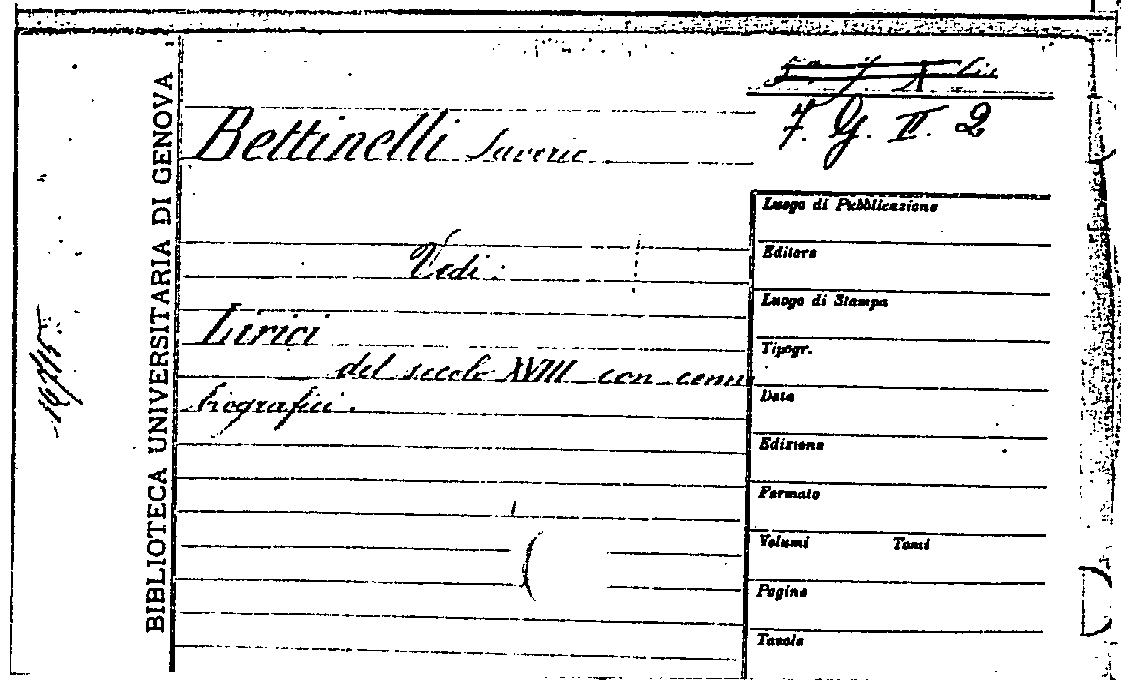 BIBLIOTECA UNIVERSITARIA DI GENOVA
7. G. II. 2
Bettinelli Saverio
Vedi:
Lirici
del secolo XVIII con cenni
biografici.
Luogo di Pubblicazione
Editore
Luogo di Stampa
Tipogr.
Data
Edizione
Formato
Volumi Tomi
Pagine
Tavole